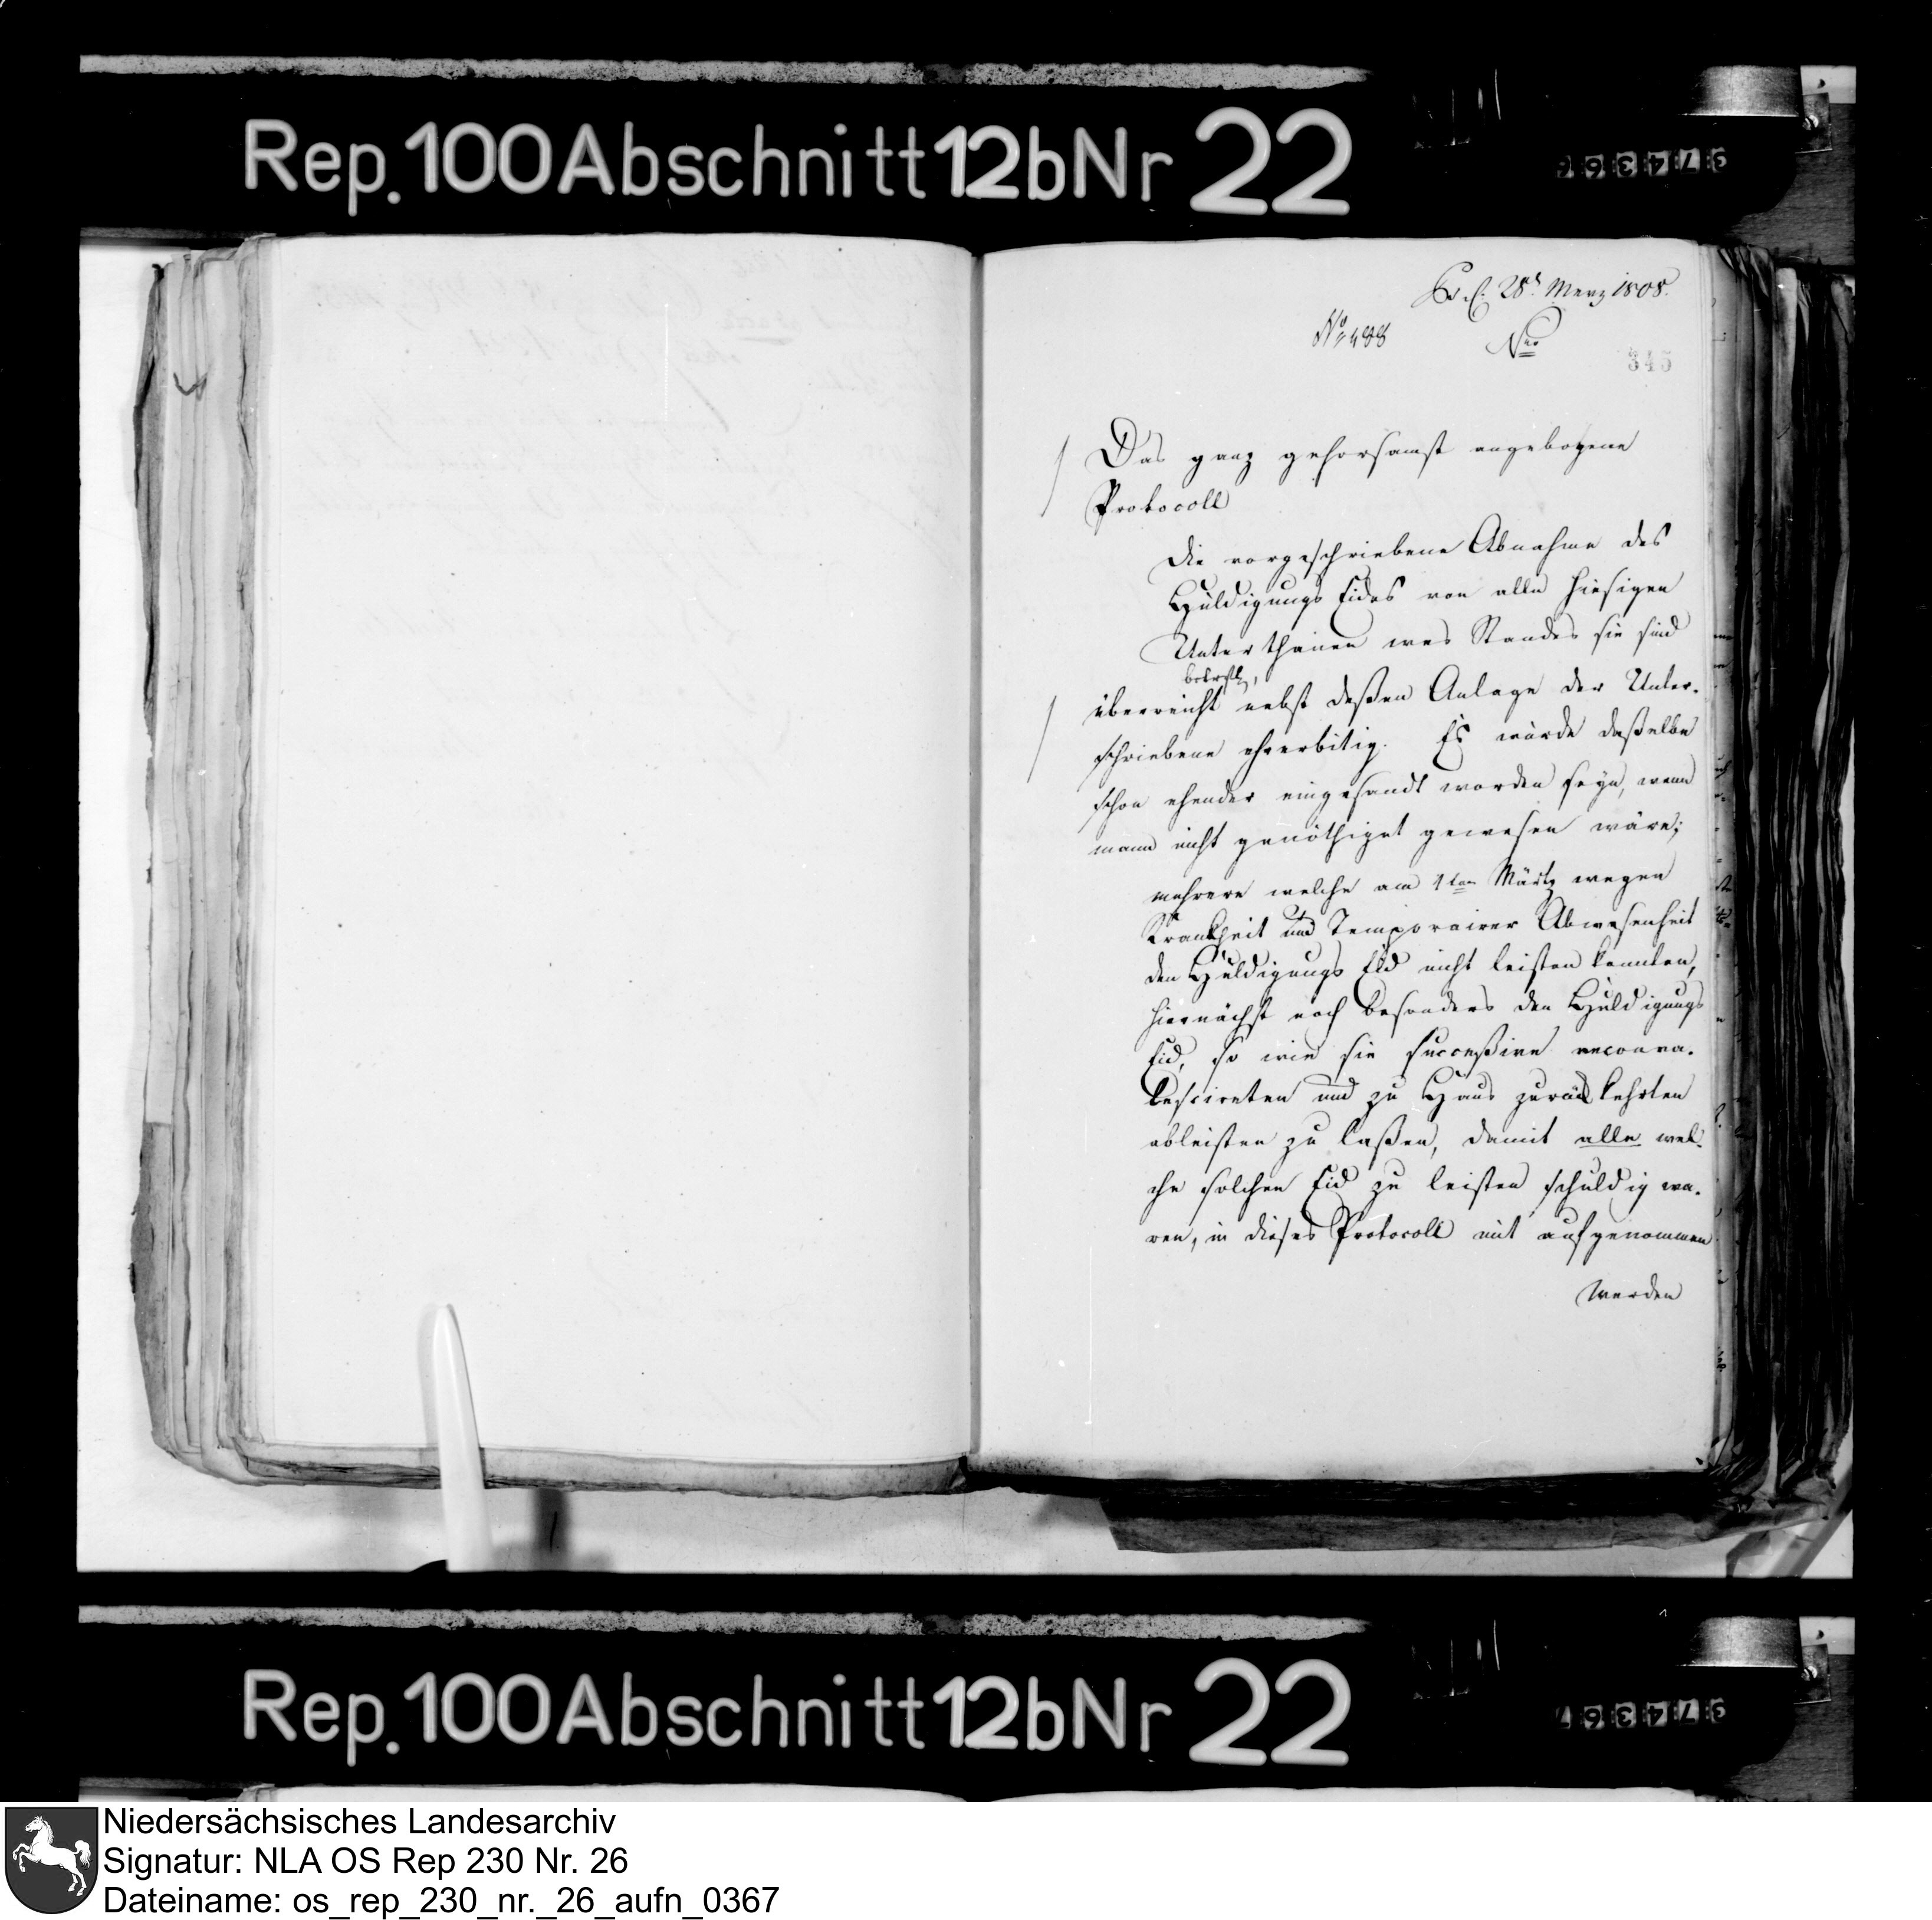 Rep. 100 Abschnitt 12b Nr 22
37436
28t Merz 1808.
No 488
Nro
345
Das ganz gehorsamst angebogene
Protocoll
die vorgeschriebene Abnahme des
Huldigungs Eides von allen hiesigen
Unterthanen wes Standes sie sind
betrefl,
überreicht nebst deßen Anlage der Unter-
schriebene ehrerbitig. Es würde daßelbe
schon ehender eingesandt worden seyn, wenn
mann nicht genöthiget gewesen wäre;
mehrere welche am 1ten Märtz wegen
Krankheit und Temporairer Abwesenheit
den Huldigungs Eid nicht leisten konnten,
hiernächst noch besonders den Huldigungs
Eid, so wie sie succeßive reconva-
lescireten und zu Haus zurück kehrten
ableisten zu laßen, damit alle wel-
che solchen Eid zu leisten schuldig wa-
ren, in dieses Protocoll mit aufgenommen
werden
Rep. 100 Abschnitt 12b Nr 22
374367
Niedersächsisches Landesarchiv
Signatur: NLA OS Rep 230 Nr. 26
Dateiname: os_rep_230_nr._26_aufn_0367